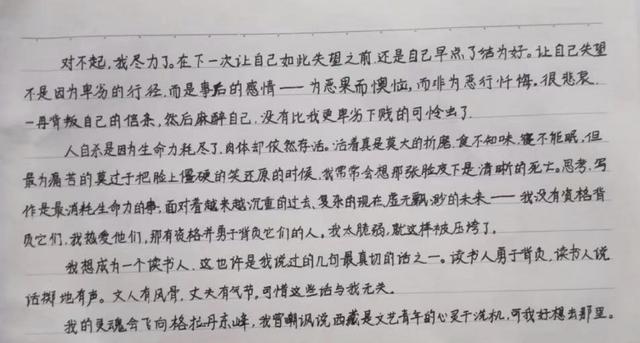 对不起，我尽力了。在下一次让自己如此失望之前，还是自己早点了结为好。让自己失望
不是因为卑劣的行径，而是事后的感情——为恶果而懊恼，而非为恶行忏悔。很悲哀，
一再背叛自己的信条，然后麻醉自己，没有比我更卑劣下贱的可怜虫了。
人自杀是因为生命力耗尽了，肉体却依然存活。活着真是莫大的折磨，食不知味，寝不能眠，但
最为痛苦的莫过于把脸上僵硬的笑还原的时候，我常常会想那张脸皮下是清晰的死亡。思考、写
作是最消耗生命力的事，面对着越来越沉重的过去、复杂的现在、虚无飘渺的未来——我没有资格背
负它们，我热爱他们，那有资格并勇于背负它们的人。我太脆弱，就这样被压垮了。
我想成为一个读书人，这也许是我说过的几句最真切的话之一。读书人勇于背负，读书人说
话掷地有声。文人有风骨，丈夫有气节，可惜这些话与我无关。
我的灵魂会飞向格拉丹东峰，我曾嘲讽说西藏是文艺青年的心灵干洗机，可我好想去那里。